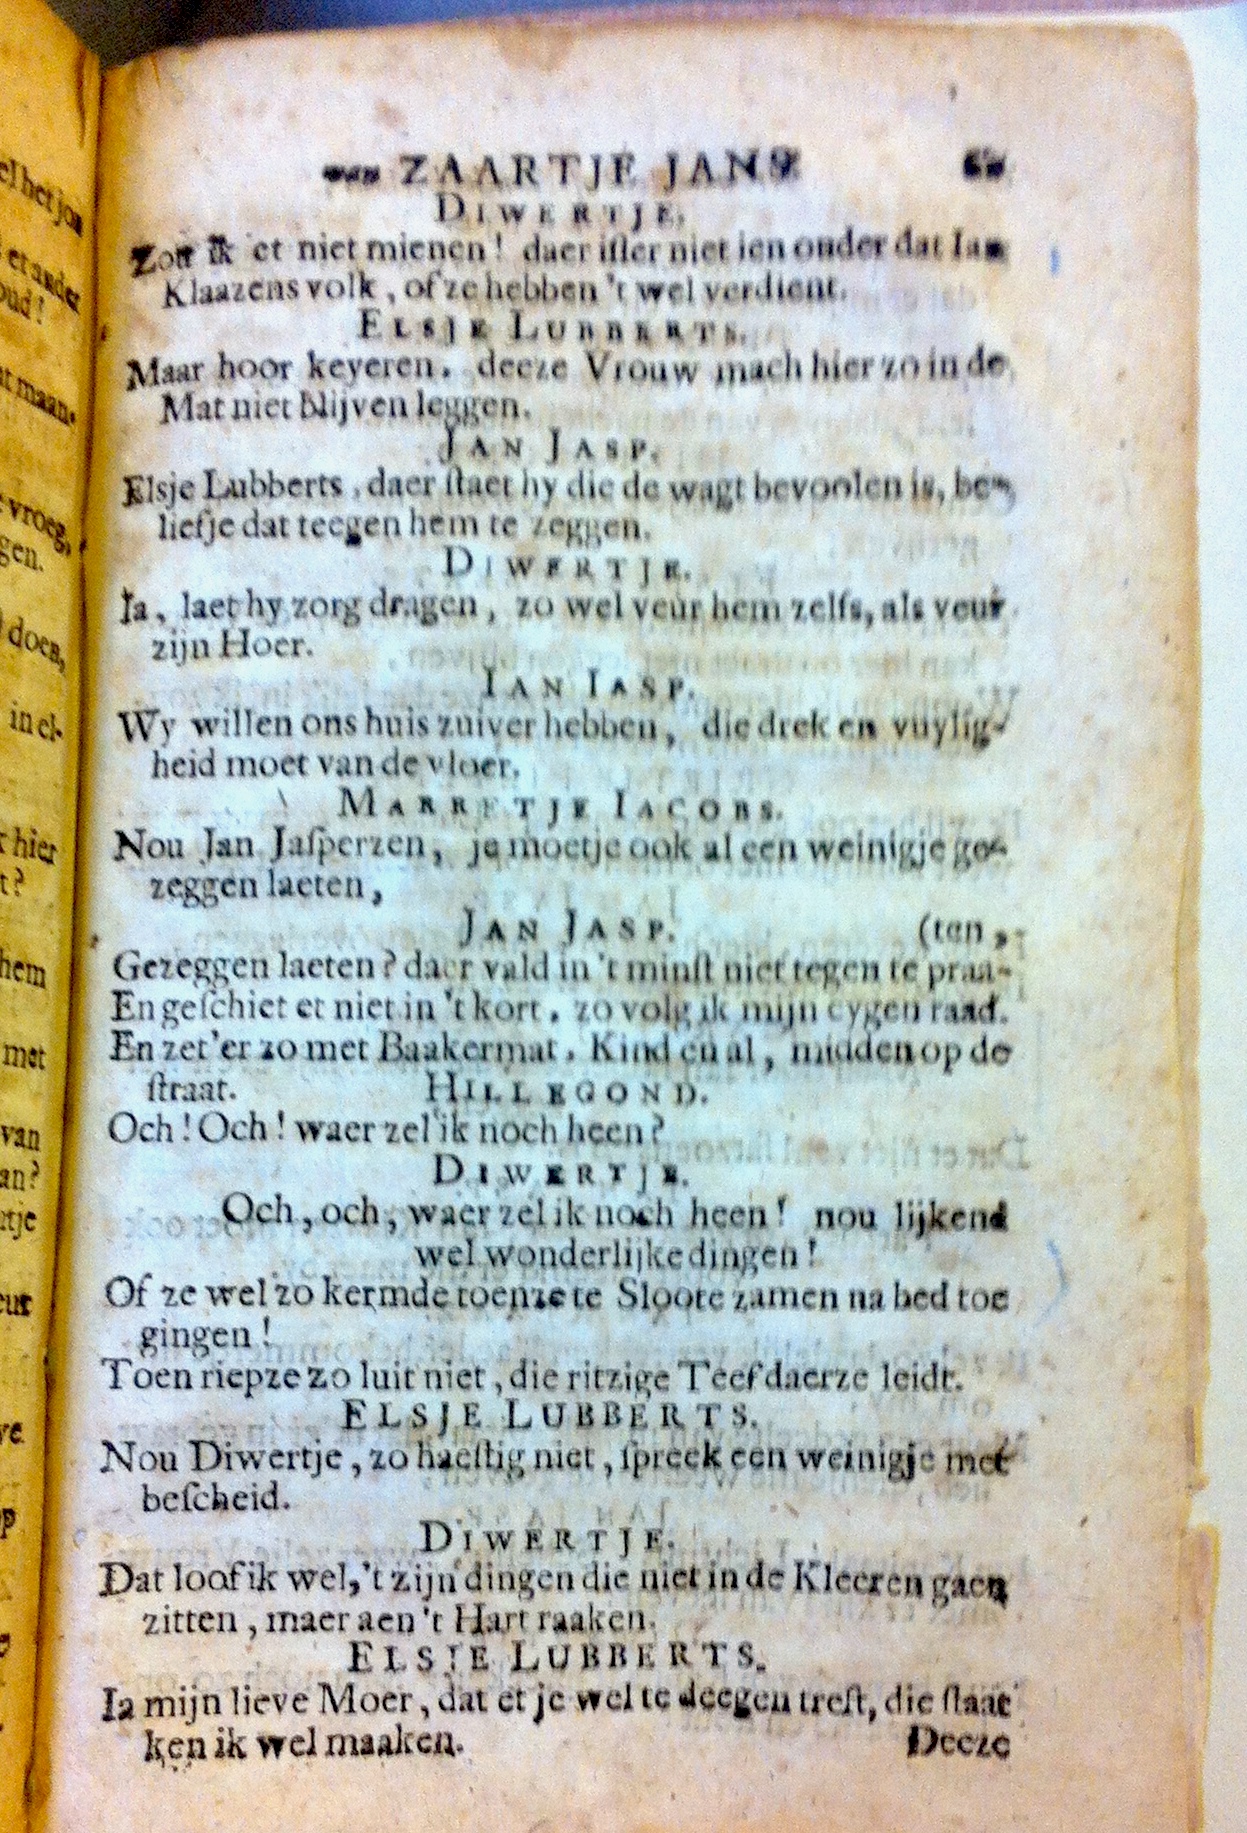 van ZAARTJE JANS
DIWERTJE.
Zou ik et niet mienen! daer isser niet ien onder dat Ian
Klaazens volk, of ze hebben 't wel verdient.
ELSJE LUBBERTS.
Maar hoor keyeren. deeze Vrouw mach hier zo in de
Mat niet blijven leggen.
JAN JASP.
Elsje Lubberts, daer ſtaet hy die de wagt bevoolen is, be-
liefje dat teegen hem te zeggen.
DIWERTJE.
Ia, laet hy zorg dragen, zo wel veur hem zelfs, als veur
zijn Hoer.
IAN IASP.
Wy willen ons huis zuiver hebben, die drek en vuylig-
heid moet van de vloer.
MARRETJE IACOBS.
Nou Jan Jaſperzen, je moetje ook al een weinigje ge-
zeggen laeten,
JAN JASP. (ten,
Gezeggen laeten? daer vald in 't minſt niet tegen te praa-
En geſchiet et niet in 't kort, zo volg ik mijn eygen raad.
En zet'er zo met Baakermat, Kind en al, midden op de
ſtraat. HILLEGOND.
Och! Och! waer zel ik noch heen?
DIWERTJE.
Och, och, waer zel ik noch heen! nou lijkend
wel wonderlijke dingen!
Of ze wel zo kermde toenze te Sloote zamen na bed toe
gingen!
Toen riepze zo luit niet, die ritzige Teef daerze leidt.
ELSJE LUBBERTS.
Nou Diwertje, zo haeſtig niet, ſpreek een weinigje met
beſcheid.
DIWERTJE.
Dat loof ik wel, 't zijn dingen die niet in de Kleeren gaen
zitten, maer aen 't Hart raaken.
ELSJE LUBBERTS.
Ia mijn lieve Moer, dat et je wel te deegen treft, die ſtaat
ken ik wel maaken.
Deeze